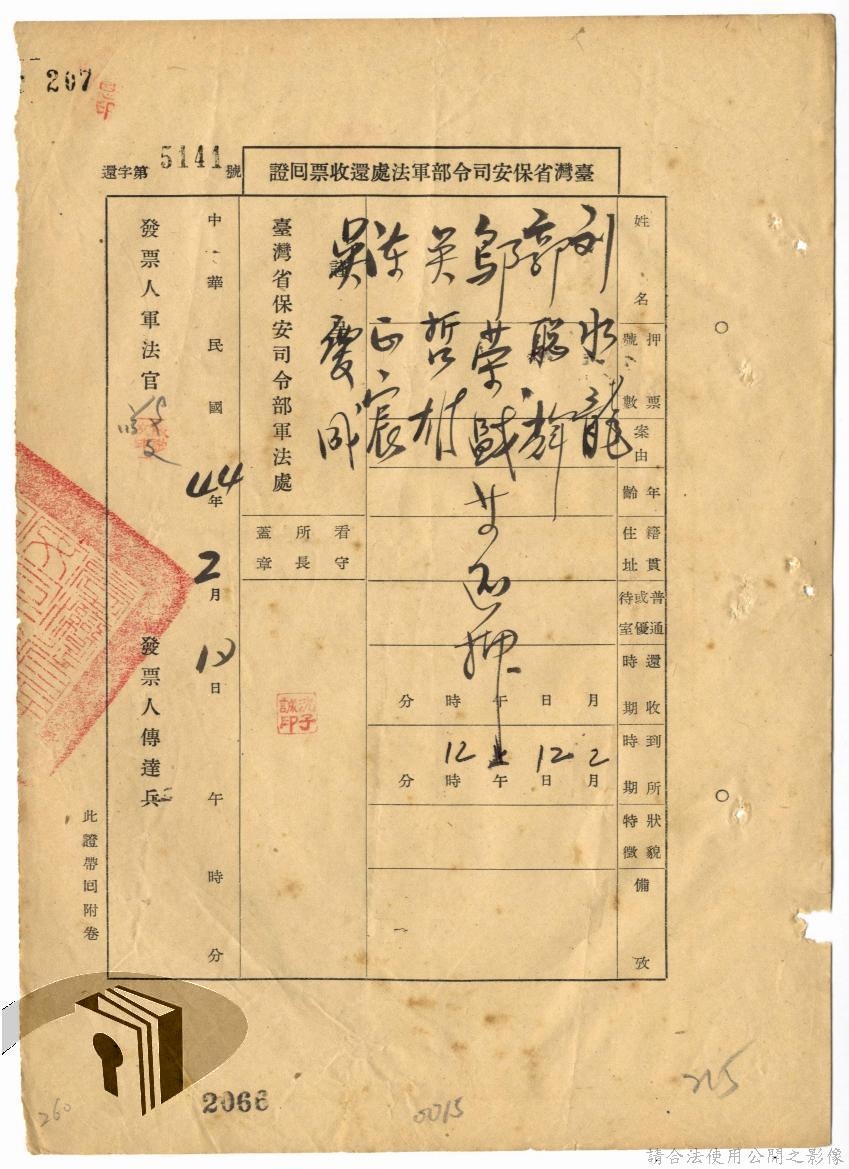 207
臺灣省保安司令部軍法處還收票回證
還字第5141號
姓名
押票號數
案由
年齡
籍貫住址
普通或優待室
還收時期
到所時期
狀貌特徵
備攷
劉水龍
郭聰輝
鄔榮盛
吳哲雄
陳正宸
吳慶成
還押
月日午時分
2月12日上午12時分
看守所長蓋章
臺灣省保安司令部軍法處
中華民國44年2月12日午時分
發票人軍法官
發票人傳達兵
此證帶回附卷
2066
0015
215
260
請合法使用公開之影像